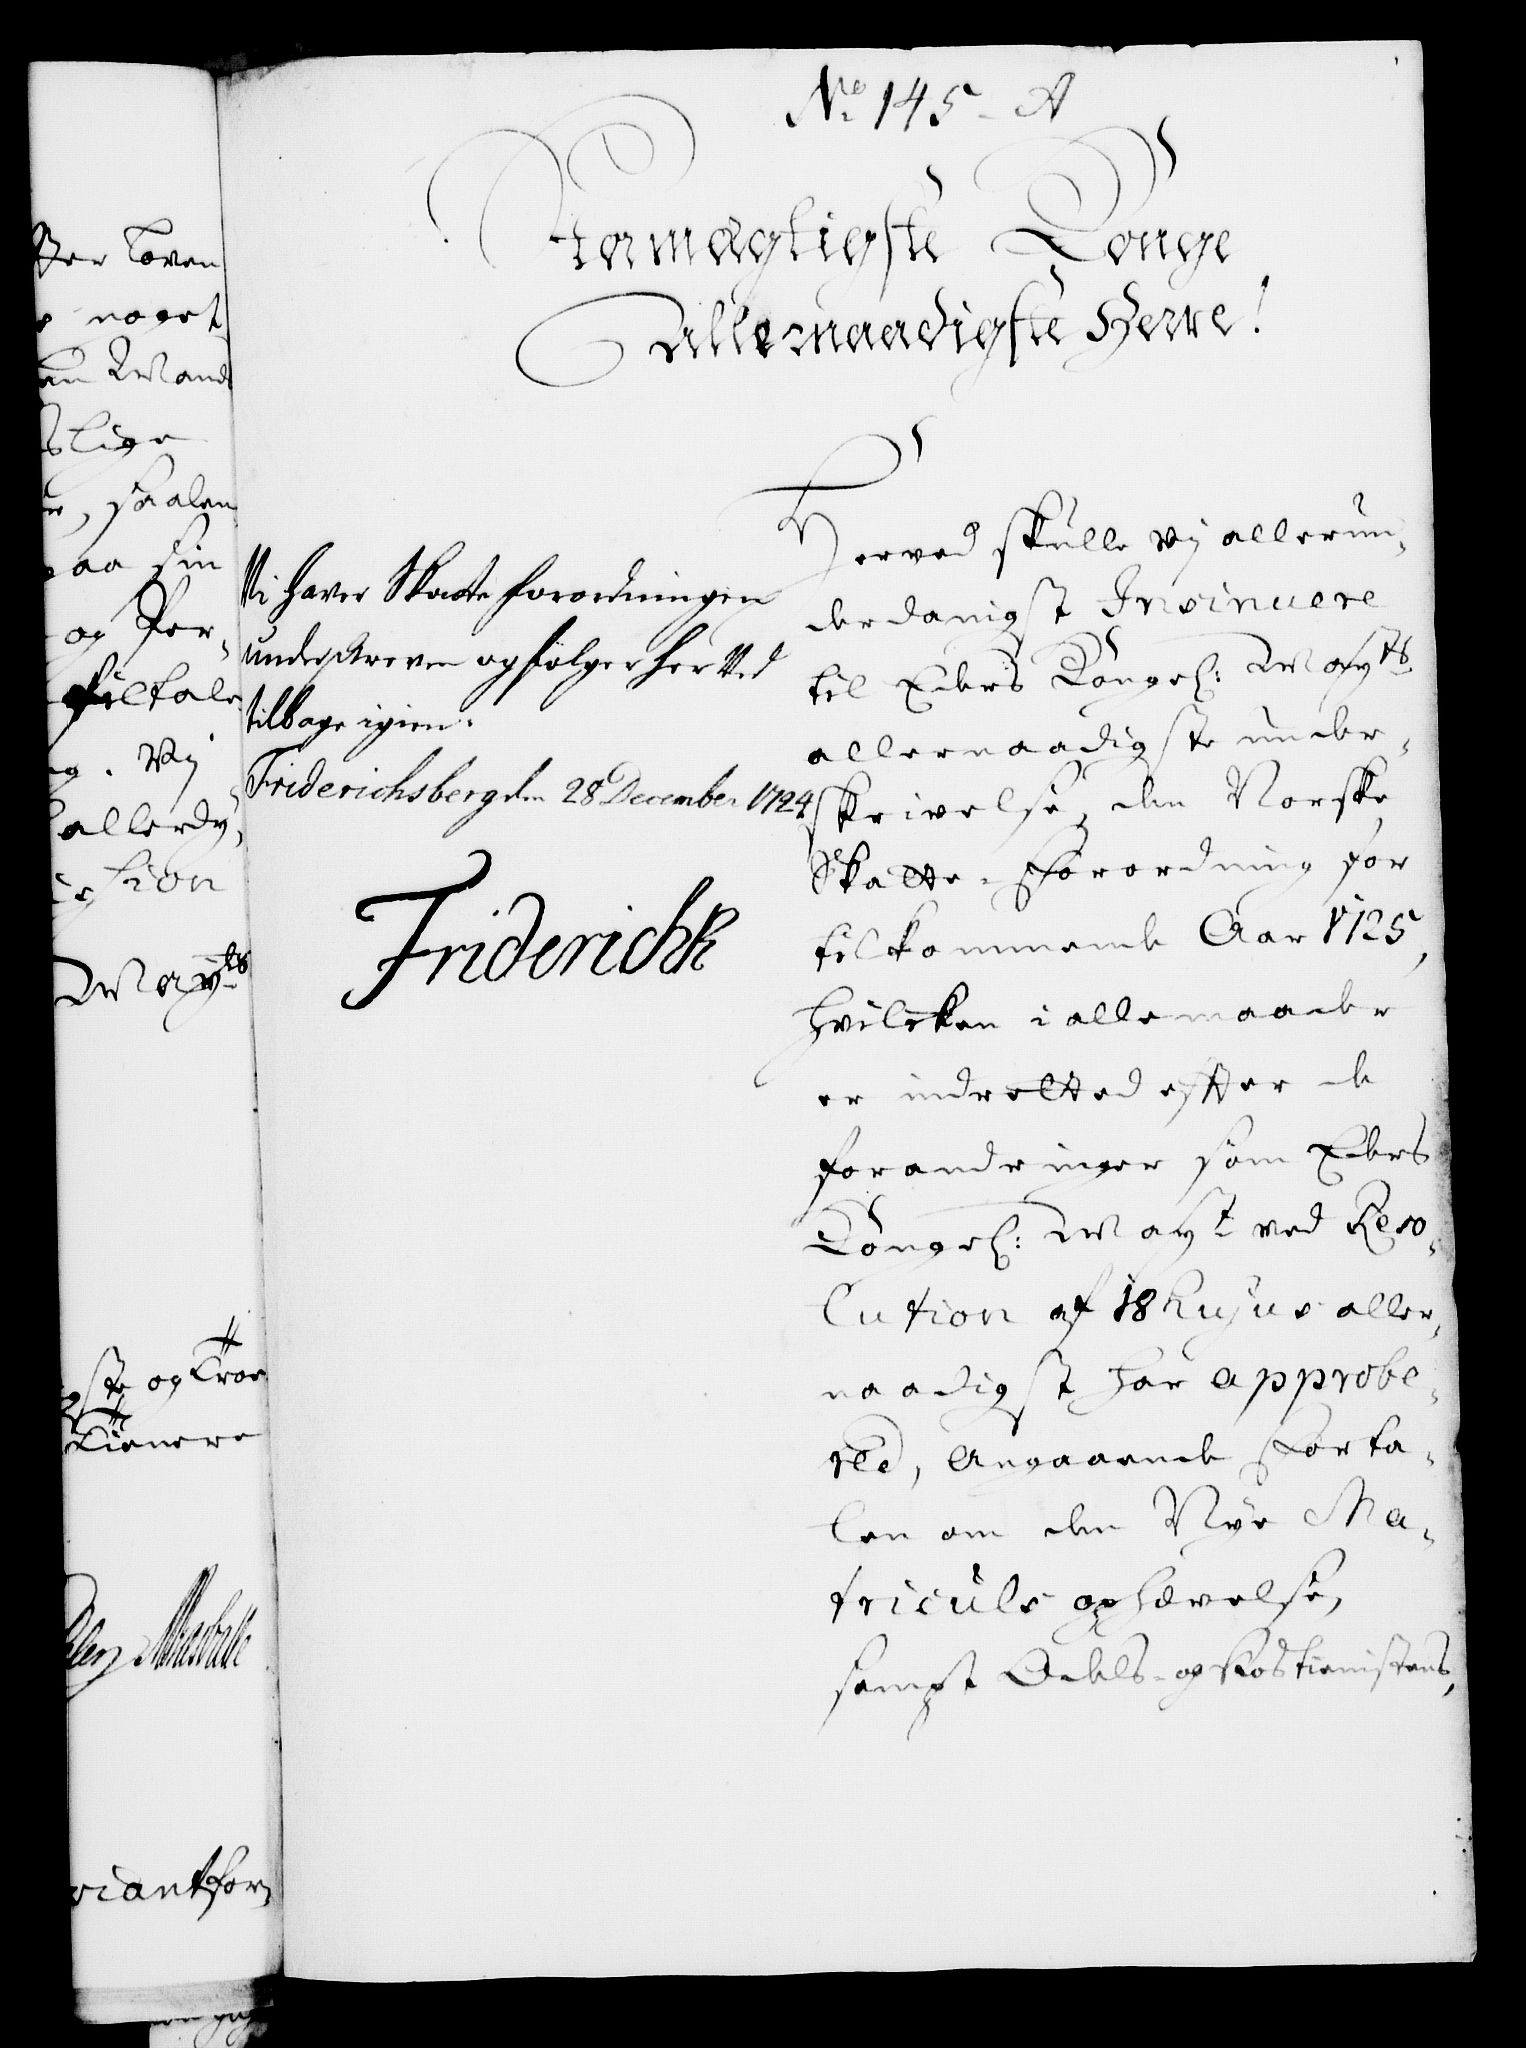 No 145 - A
Stormægtigste Konge
Allernaadigste Herre!
Herved skulle vij allerun-
derdanigst Insinuere
til Eders Kongel: Mayts
allernaadigste under-
skrivelse, den Norske
Skatte-Forordning for
tilkommende Aar 1725,
hvilcken i alle maader
er indretted efter de
forandringer som Eders
Kongel: Mayt ved Reso-
lution af 18 hujus aller-
naadigst har approbe-
red, Angaaende Forta-
len om den Nye Ma-
triculs ophævelse,
sampt Odels- og Rostienistens,
Vi haver Skatte forordningen
underskreven og følger her Ved
tilbage igien.
Friderichsberg den 28 December 1724
Friderich R
ter loven
noget
Mand
slige
, saalen
paa sin
og for-
filtale
. Vij
allerdy-
tion
Mayts
gste og Troe
Tienere
viantfor-